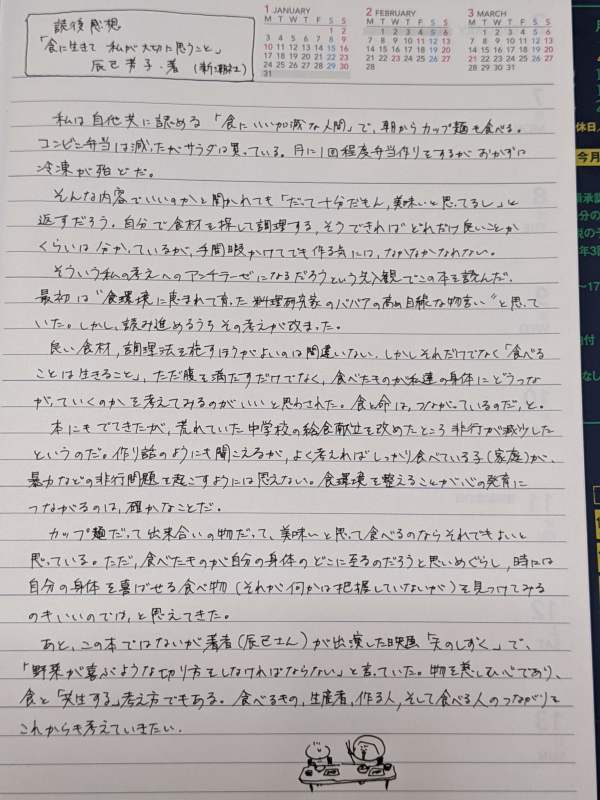 読後感想
「食に生きて 私が大切に思うこと」
辰巳芳子・著 (新潮社)
1 JANUARY
M T W T F S S
1 2
3 4 5 6 7 8 9
10 11 12 13 14 15 16
17 18 19 20 21 22 23
24 25 26 27 28 29 30
31
2 FEBRUARY
M T W T F S S
1 2 3 4 5 6
7 8 9 10 11 12 13
14 15 16 17 18 19 20
21 22 23 24 25 26 27
28
3 MARCH
M T W T F S S
1 2 3 4 5 6
7 8 9 10 11 12 13
14 15 16 17 18 19 20
21 22 23 24 25 26 27
28 29 30 31
私は自他共に認める「食にいい加減な人間」で、朝からカップ麺も食べる。
コンビニ弁当は減ったがサラダは買っている。月に1回程度弁当作りをするがおかずは
冷凍が殆どだ。
そんな内容でいいのかと聞かれても「だって十分だもん、美味いと思ってるし」と
返すだろう。自分で食材を探して調理する、そうできればどれだけ良いことか
くらいは分かっているが、手間暇かけてでも作る気には、なかなかなれない。
そういう私の考えへのアンチテーゼになるだろうという先入観でこの本を読んだ。
最初は"食環境に恵まれて育った料理研究家のババアの高め目線な物言い"と思って
いた。しかし、読み進めるうちその考えが改まった。
良い食材、調理法を施すほうがよいのは間違いない。しかしそれだけでなく「食べる
ことは生きること」、ただ腹を満たすだけでなく、食べたものが私達の身体にどうつな
がっていくのかを考えてみるのがいいと思わされた。食と命は、つながっているのだ、と。
本にもでてきたが、荒れていた中学校の給食献立を改めたところ非行が減少した
というのだ。作り話のようにも聞こえるが、よく考えればしっかり食べている子(家庭)が、
暴力などの非行問題を起こすようには思えない。食環境を整えることが心の発育に
つながるのは、確かなことだ。
カップ麺だって出来合いの物だって、美味いと思って食べるのならそれでもよいと
思っている。ただ、食べたものが自分の身体のどこに至るのだろうと思いめぐらし、時には
自分の身体を喜ばせる食べ物(それが何かは把握していないが)を見つけてみる
のもいいのでは、と思えてきた。
あと、この本ではないが著者(辰巳さん)が出演した映画「天のしずく」で、
「野菜が喜ぶような切り方をしなければならない」と言っていた。物を慈しむ心であり、
食と「共生する」考え方でもある。食べるもの、生産者、作る人、そして食べる人のつながりを
これからも考えていきたい。